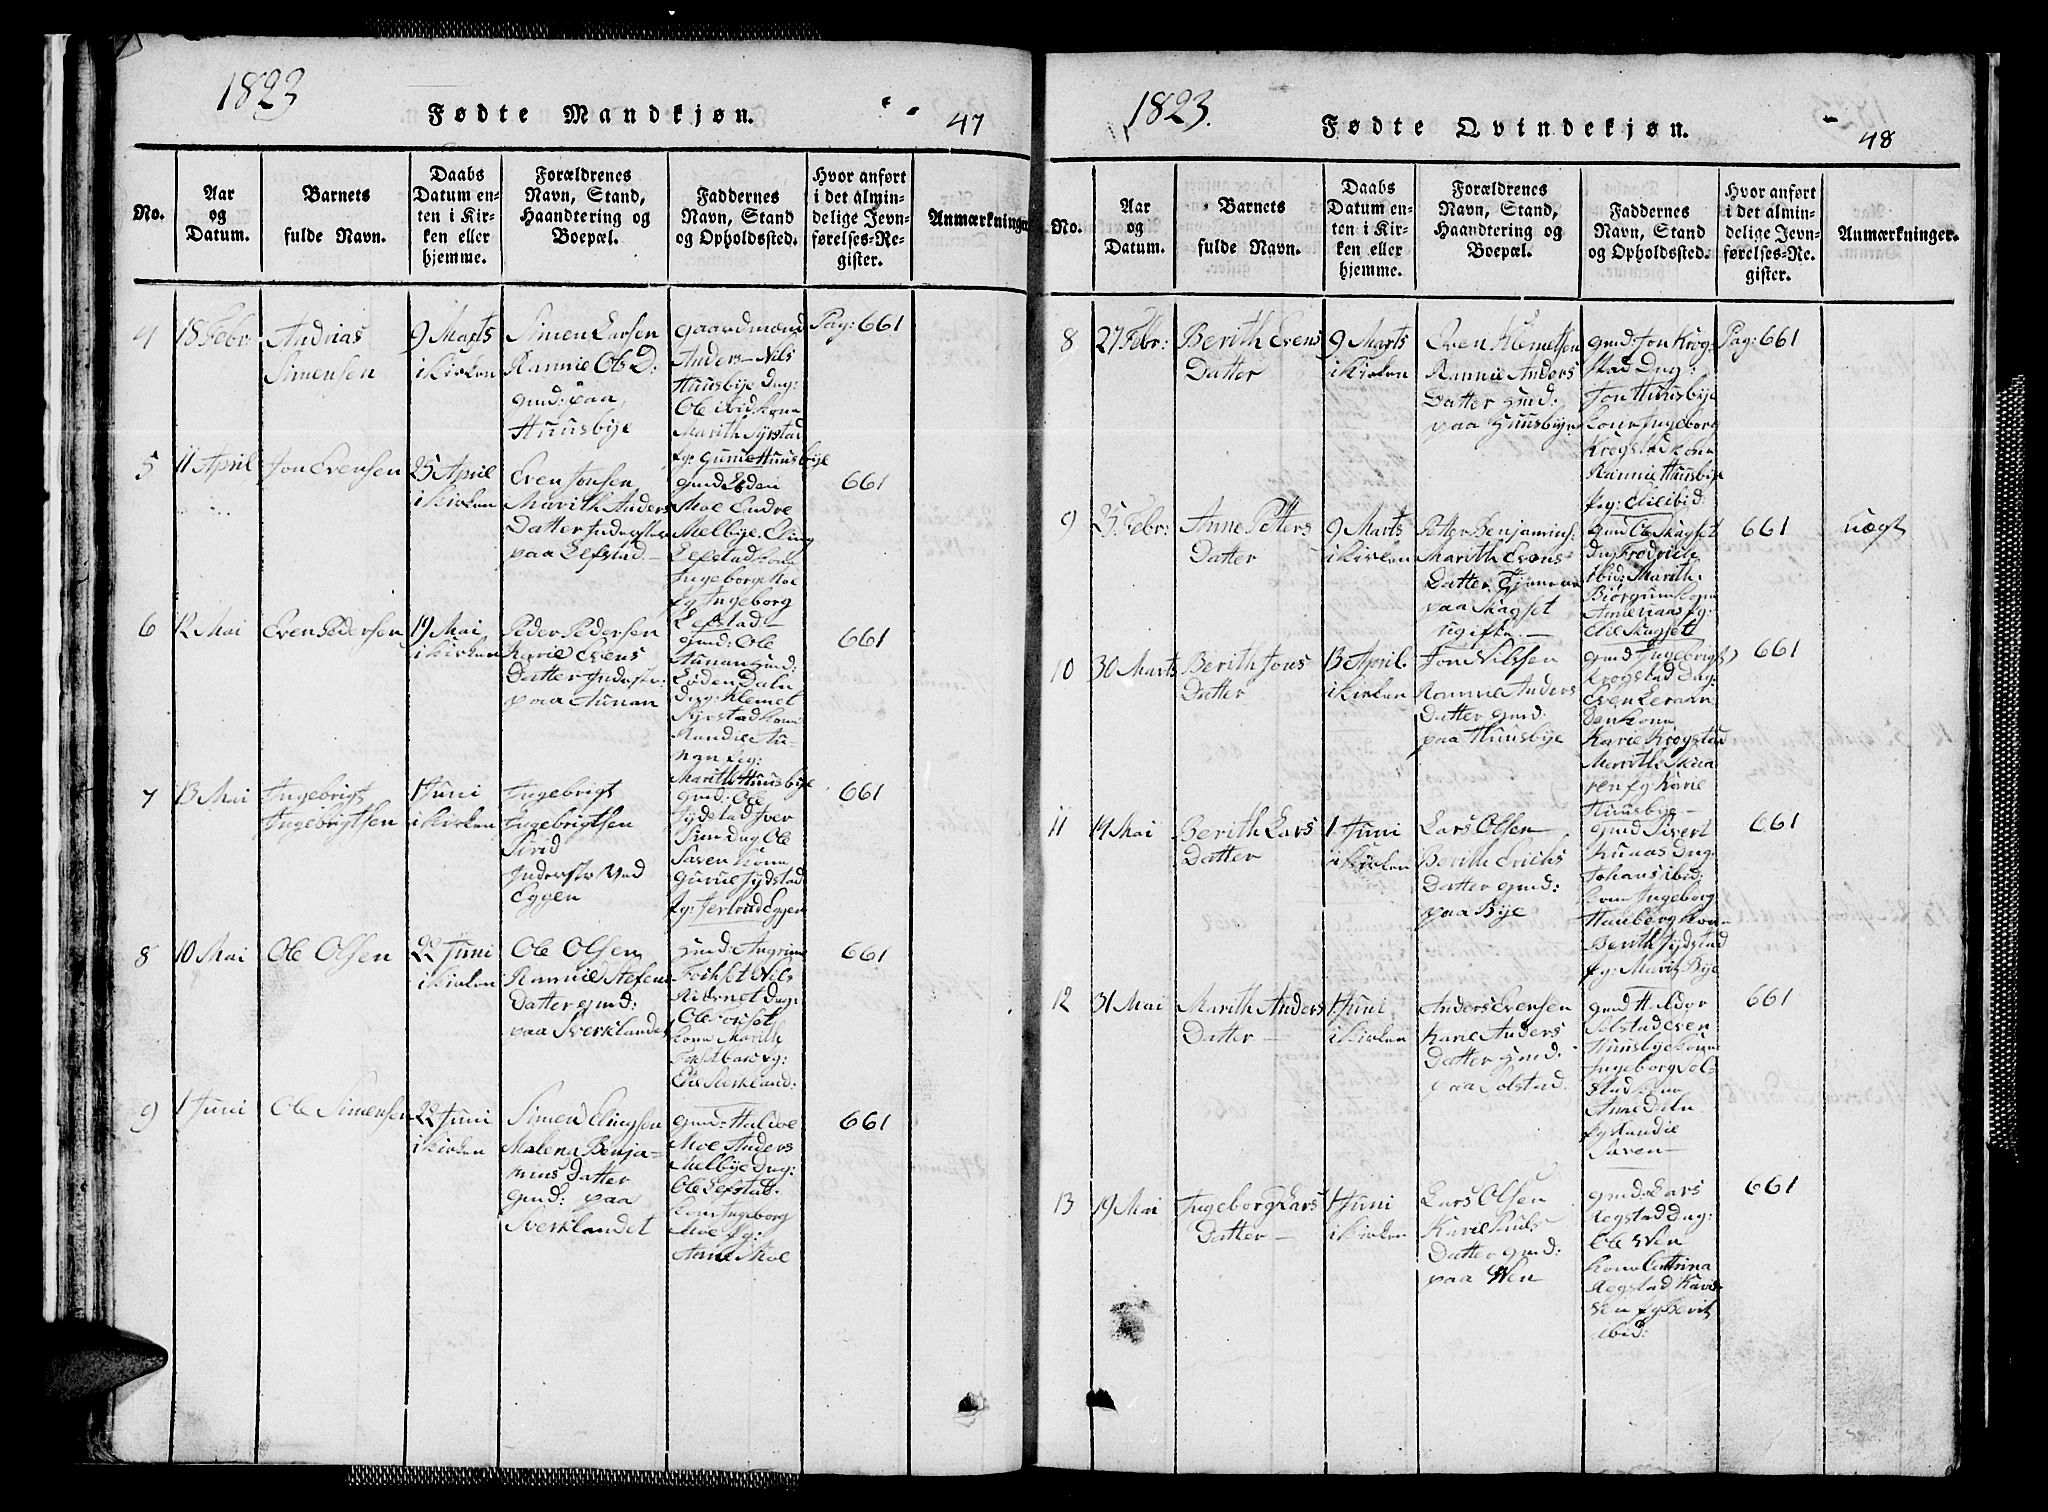 1823
Fødte Mandkjøn.
47
No.
Aar
og
Datum.
Barnets
fulde Navn.
Daabs
Datum en-
ten i Kir-
ken eller
hjemme.
Forældrenes
Navn, Stand,
Haandtering og
Boepæl.
Faddernes
Navn, Stand
og Opholdssted.
Hvor anført
i det almin-
delige Jevn-
førelses-Re-
gister.
Anmærkninger
4
18 Febr:
Andrias
Simensen
9 Marts
i Kirken
Simen Larsen
Rannie Ols D:
gmd: paa
Huusbye
Gaardmænd
Anders - Nils
Huusbye Dug:
Ole ibid kona
Marith Syrstad
Pg: Gurie Huusbye
Pag: 661
5
11 April
Jon Evensen
25 April
i Kirken
Even Jonsen
Marith Anders
Datter Inderster
paa Lefstad -
gmd Loden
Moe Endre
Melbye Eling
Lefstad kona
Ingeborg Moe
Pg Ingeborg
Lefstad -
661
6
12 Mai
Even Pedersen
19 Mai
i Kirken
Peder Pedersen
Karie Evens
Datter Inderstr:
paa Aunan
gmd: Ole
Aunan gmd:
Loden Daln
Dug: Klemet
Syrstad kona
Randie Au-
nan Pg:
Marith Huusbye
661
7
13 Mai
Ingebrigt
Ingebrigtsen
1 Juni
i Kirken
Ingebrigt
Ingebrigtsen
Sirid
Inderste Ved
Eggen
gmd: Ole
Jydstad Iver
Siem Dug Ole
Saven kona
Gurie Jydstad
Pg: Jertrud Eggen
661
8
10 Mai
Ole Olsen
22 Juni
i Kirken
Ole Olsen
Rannie Stefens
Datter gmd:
paa Sverklandet
gmd: Angrim
Nils
Dug:
kona Marith
Pg:
Sverkland:
661
9
1 Juni
Ole Simensen
22 Juni
i Kirken
Simen Elingsen
Malena Benja-
mins Datter
gmd: paa
Sverklandet
gmd: Haldoe
Moe Anders
Melbye Dug:
Ole Lefstad
kona Ingeborg
Moe Pg:
Anne Moe
661
1823.
Fødte Qvindekjøn.
48
No.
Aar
og
Datum.
Barnets
fulde Navn.
Daabs
Datum en-
ten i Kir-
ken eller
hjemme.
Forældrenes
Navn, Stand,
Haandtering og
Boepæl.
Faddernes
Navn, Stand
og Opholdssted.
Hvor anført
i det almin-
delige Jevn-
førelses-Re-
gister.
Anmærkninger.
8
27 Febr:
Berith Evens
Datter
9 Marts
i Kirken
Even Klemetsen
Rannie Anders
Datter gmd:
paa Huusbye
gmd: Jon Krog-
stad Dug:
Jon Huusbye
kone Ingeborg
Krogstad kona
Rannie Huusbye
Pg: Elie ibid:
Pag: 661
9
25 Febr:
Anne Petters
Datter
9 Marts
i Kirken
Petter Benjamins:
Marith Evens
Datter Tjenene
paa Skagset
ugifte. -
gmd Ole Skagset
Dug Fredrich
ibid: Marith
Biørgum kona
Ane Pg:
Elie Skagset
661
uægt
10
30 Marts
Berith Jons
Datter
13 April.
i Kirken
Jon Nilssen
Rannie Anders
Datter gmd:
paa Huusbye
gmd Ingebrigt
Krogstad Dug:
Even Leraan
den kona
Karie Krogstad
Marith Skaa
ren Pg Karie
Huusbye -
661
11
14 Mai
Berith Lars
Datter
1 Juni
i Kirken
Lars Olsen
Berith Erichs
Datter gmd:
paa Bye
gmd Sivert
Dug:
Johans ibid:
kone Ingeborg
Hauberg kona
Berith Jydstad
Pg: Marit Bye
661
12
31 Mai
Marith Anders
Datter -
1 Juni
i Kirken
Anders Evensen
Karie Anders
Datter gmd:
paa Solstad.
gmd Haldor
Solstad Even
Huusbye kona
Ingeborg Sol-
stad kona
Anne Daln
Pg Randie
Saven -
661
13
19 Mai
Ingeborg Lars
Datter -
1 Juni
i Kirken
Lars Olsen
Karie Pauls
Datter gmd:
paa Wen
gmd: Lars
Regstad Dug:
Ole Wen
kona Cattrina
Regstad Karie
Wen Pg Berit
ibid:
661